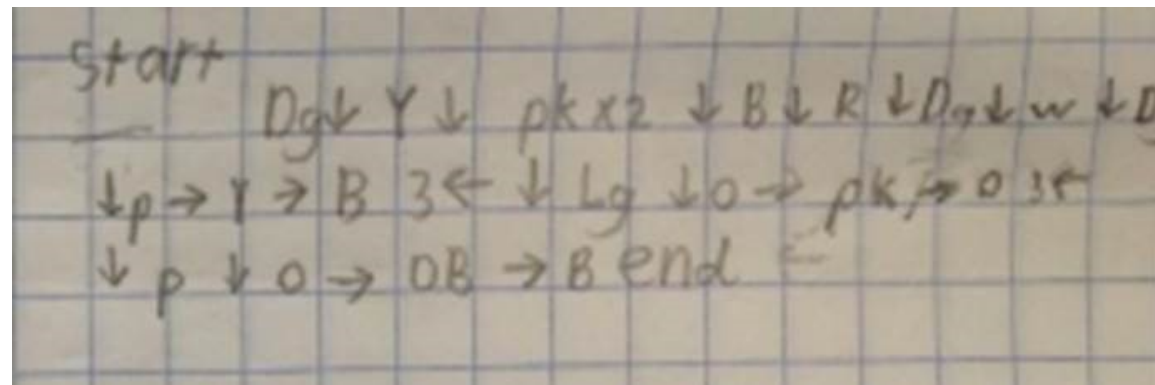 start
Dg↓ Y↓ pkx2 ↓B↓R↓Dg↓w↓D
↓p→Y→B 3← ↓Lg ↓o→pk→o 3←
↓p ↓o→OB→B end